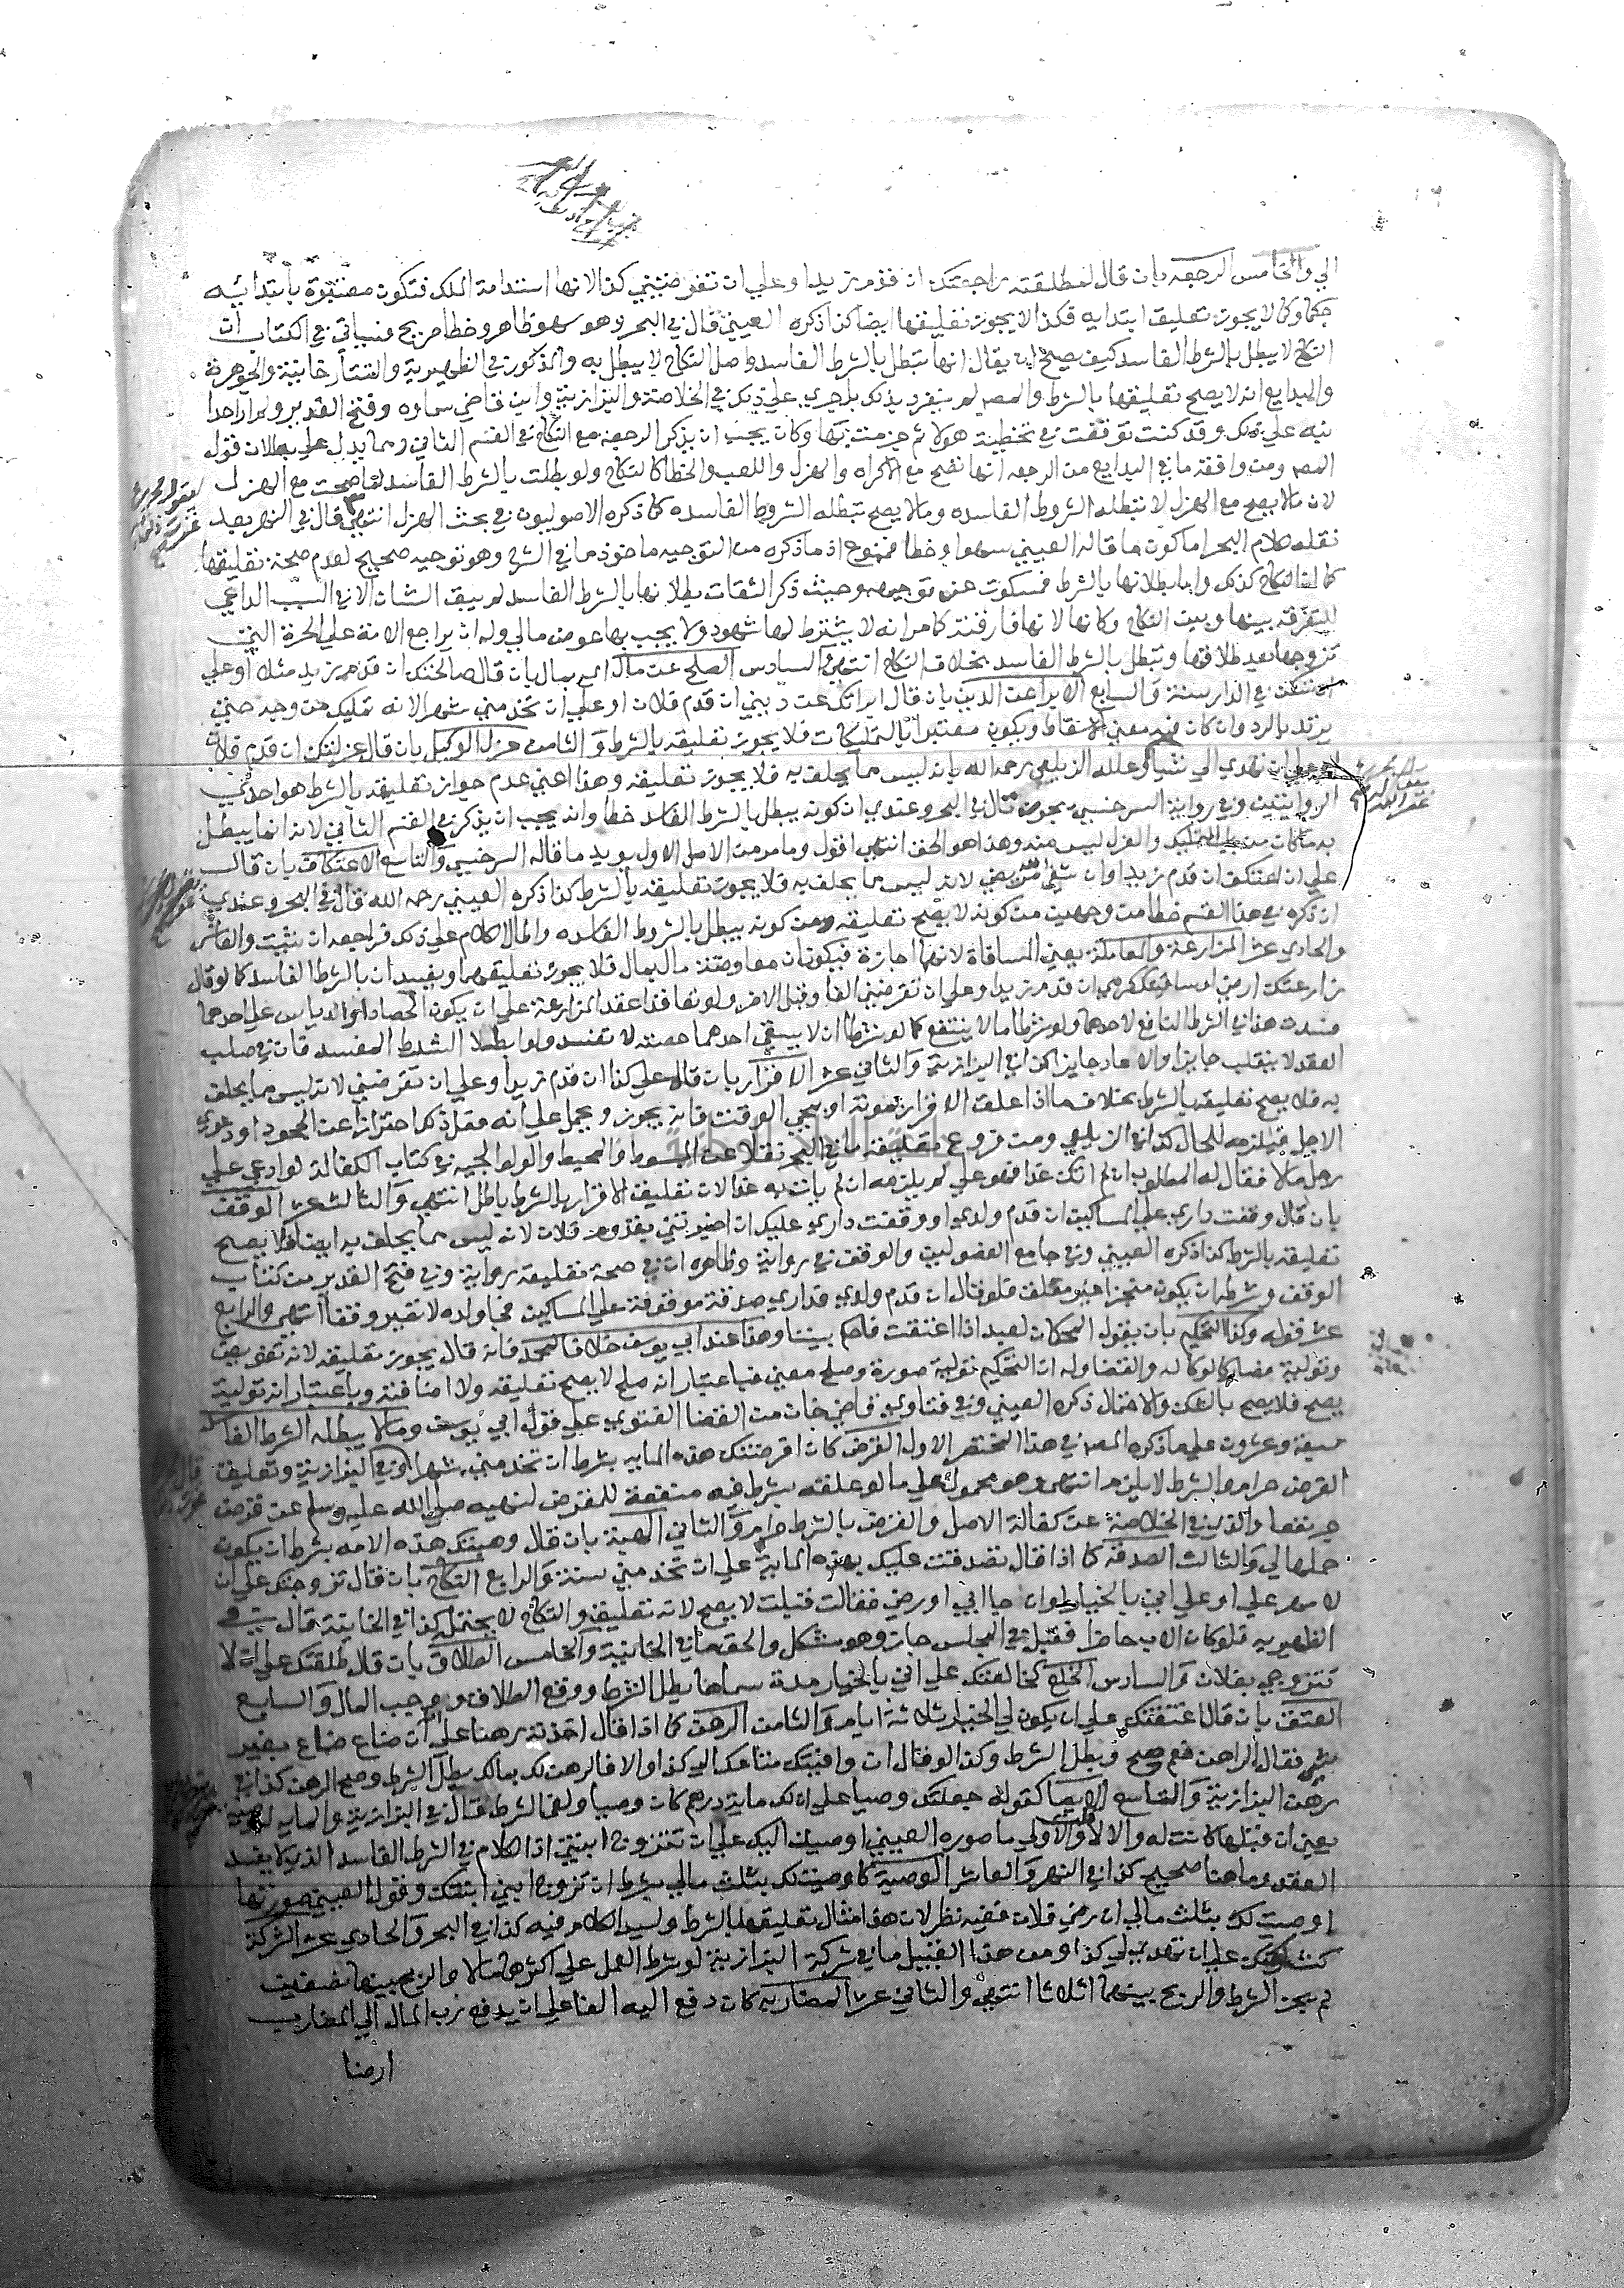 الي والخامس الرجعه بان قال لمطلقته راجعتك ان قدم زيد او علي ان تقرضيني كذا لانها استدامة الملك فتكون معتبرة بابتدائه
فكما لا يجوز تعليق ابتدايه فكذا لا يجوز تعليقها ايضا كذا ذكره العيني قال في البحر وهو سهو ظاهر وخطا صريح فسياتي في الكتاب ان
النكاح لا يبطل بالشرط الفاسد كيف يصح ان يقال انها تبطل بالشرط الفاسد واصل النكاح لا يبطل به والمذكور في الظهيرية والتتارخانية والجوهرة
والبدايع انه لا يصح تعليقها بالشرط والمص لم ينفرد بذلك بل جري علي ذلك في الخلاصة والبزازية وابن قاضي سماوه وفتح القدير ولم ار احدا
نبه علي ذلك وقد كنت توقفت في تخطية هولاء ثم جزمت بها وكان يجب ان يذكر الرجعة مع النكاح في القسم الثاني ومما يدل علي بطلان قوله
المص ومن وافقه ما في البدايع من الرجعه انها تصح مع الاكراه والهزل واللعب والخطا كالنكاح ولو بطلت بالشرط الفاسد لما صحت مع الهزل
لان ما يصح مع الهزل لا تبطله الشروط الفاسده وما لا يصح تبطله الشروط الفاسده كما ذكره الاصوليون في بحث الهزل انتهي قال في النهر بعد
نقله كلام البحر اما كون ما قاله العيني سهوا وخطا فممنوع اذ ما ذكره من التوجيه ماخوذ مما في الشرح وهو توجيه صحيح لعدم صحة تعليقها
كما ان النكاح كذلك واما بطلانها بالشرط فمسكوت عن توجيهه وحيث ذكر الثقات بطلانها بالشرط الفاسد لم يبق الشان الا في السبب الداعي
للتفرقه بينها وبين النكاح وكانها لانها فارقته كما مر انه لا يشترط لها شهود ولا يجب بها عوض مالي وله ان يراجع الامة علي الحرة التي
تزوجها بعد طلاقها وتبطل بالشرط الفاسد بخلاف النكاح انتهي السادس الصلح عن مال اي بمال بان قال صالحتك ان قدم زيد مثلا او علي
ان تسكن في الدار سنة والسابع الابراء عن الدين بان قال ابراتك عن ديني ان قدم فلان او علي ان تخدمني شهر الانه تمليك من وجه حتي
يرتد بالرد وان كان فيه معني الاسقاط ويكون معتبرا بالتمليكات فلا يجوز تعليقه بالشرط والثامن عزل الوكيل بان قال عزلتك ان قدم فلان
او علي ان تهدي الي شيا وعلله الزيلعي رحمه الله بانه ليس مما يحلف به فلا يجوز تعليقه وهذا اعني عدم جواز تعليقه بالشرط هو احدي
الروايتين وفي رواية السرخسي يجوز قال في البحر وعندي ان كونه يبطل بالشرط الفاسد خطا وانه يجب ان يذكر في القسم الثاني لانه انما يبطل
به ما كان من باب التمليك والعزل ليس منه وهذا هو الحق انتهي اقول وما مر من الاصل الاول يويد ما قاله السرخسي والتاسع الاعتكاف بان قال
علي ان اعتكف ان قدم زيد او ان شفي مريضي لانه ليس مما يحلف به فلا يجوز تعليقه بالشرط كذا ذكره العيني رحمه الله قال في البحر وعندي
ان ذكره في هذا القسم خطا من وجهين من كونه لا يصح تعليقه ومن كونه يبطل بالشروط الفاسده واطال الكلام علي ذلك فراجعه ان شيت والعاشر
والحادي عشر المزارعة والمعاملة يعني المساقاة لانهما اجارة فيكونان معاوضة مال بمال فلا يجوز تعليقهما ويفسدان بالشرط الفاسد كما لو قال
زارعتك ارضي او ساقيتك كرمي ان قدم زيد او علي ان تقرضيني الفا وقيل الاخر ولو تعاقدا عقد المزارعة علي ان يكون الحصاد او الدياس علي احدهما
فسدت هذا في الشرط النافع لاحدهما ولو شرطا ما لا ينتفع كما لو شرطا ان لا يسقي احدهما حصته لا تفسد ولو ابطلا الشرط المفسد فان في صلب
العقد لا ينقلب جايزا والا عاد جايزا كذا في البزازية والثاني عشر الاقرار بان قال علي كذا ان قدم زيد او علي ان تقرضيني لانه ليس مما يحلف
به فلا يصح تعليقه بالشرط بخلاف ما اذا علق الاقرار بموته او بمجي الوقت فانه يجوز ويحمل علي انه فعل ذكر احترازا عن الجحود او دعوي
الاجل فيلزمه للحال كذا في الزيلعي ومن فروع تعليقه ما في البحر نقلا عن المبسوط والمحيط والولوالجيه في كتاب الكفالة لو ادعي علي
رجل مالا فقال له المطلوب ان لم اتك غدا فهو علي لم يلزمه ان لم يات به غدا لان تعليق الاقرار بالشرط باطل انتهي والثالث عشر الوقف
بان قال وقفت داري علي المساكين ان قدم ولدي او وقفت داري عليك ان اخبرتني بقدوم فلان لانه ليس مما يحلف به ايضا فلا يصح
تعليقه بالشرط كذا ذكره العيني وفي جامع الفصولين والوقف في رواية وظاهره ان في صحة تعليقه رواية وفي فتح القدير من كتاب
الوقف وشرطه ان يكون منجزا غير معلق فلو قال ان قدم ولدي فداري صدقة موقوفة علي المساكين فجا ولده لا تصير وقفا انتهي والرابع
عشر قوله وكذا التحكيم بان يقول المحكمان لعبد اذا اعتقت فاحكم بيننا وهذا عند ابي يوسف خلافا لمحمد فانه قال يجوز تعليقه لانه تفويض
وتولية فصار كالوكاله والقضا وله ان التحكيم تولية صورة وصلح معني فباعتبار انه صلح لا يصح تعليقه ولا اضافته وباعتبار انه تولية
يصح فلا يصح بالشك والاحتمال ذكره العيني وفي فتاوي قاضي خان من القضا الفتوي علي قول ابي يوسف وما لا يبطله الشرط الفاسد
سبعة وعشرون علي ما ذكره المص في هذا المختصر الاول القرض كان اقرضتك هذه المايه بشرط ان تخدمني شهرا وفي البزازية وتعليق
القرض حرام والشرط لا يلزم انتهي وهو محمول علي ما لو علقه بشرط فيه منفعة للمقرض لنهيه صلي الله عليه وسلم عن قرض
جر نفعا والذي في الخلاصة عن كفالة الاصل والقرض بالشرط حرام والثاني الهبة بان قال وهبتك هذه الامه بشرط ان يكون
حملها لي والثالث الصدقه كما اذا قال تصدقت عليك بهذه الماية علي ان تخدمني سنة والرابع النكاح بان قال تزوجتك علي ان
لا مهر علي او علي اني بالخيار او ان جا ابي او رضي فقالت قبلت لا يصح لانه تعليق والنكاح لا يحتمله كذا في الخانية قال في
الظهيريه فلو كان الاب حاضرا فقبل في المجلس جاز وهو مشكل والحق ما في الخانية والخامس الطلاق بان قال طلقتك علي ان لا
تتزوجي بفلان والسادس الخلع كخالعتك علي اني بالخيار مدة سماها بطل الشرط ووقع الطلاق ووجب المال والسابع
العتق بان قال اعتقتك علي ان يكون لي الخيار ثلاثة ايام والثامن الرهن كما اذا قال اخذته رهنا علي ان ضاع ضاع بغير
شي فقال الراهن نعم صح وبطل الشرط وكذا لو قال ان وافيتك متاعك الي كذا والا فالرهن لك بمالك بطل الشرط وصح الرهن كذا في
رهن البزازية والتاسع الايصا كقوله جعلتك وصيا علي ان لك ماية درهم كان وصيا ولغا الشرط قال في البزازية والمايه له وصيه
يعني ان قبلها كانت له والا لا والاولي ما صوره العيني اوصيت اليك علي ان تتزوج ابنتي اذ الكلام في الشرط الفاسد الذي لا يفسد
العقد وما هنا صحيح كذا في النهر والعاشر الوصية كاوصيت لك بثلث مالي بشرط ان تزوج ابني ابنتك وقول العيني صورتها
اوصيت لك بثلث مالي ان رضي فلان ففيه نظر لان هذا مثال تعليقها بالشرط وليس الكلام فيه كذا في البحر والحادي عشر الشركة
كشاركتك علي ان تهدي لي كذا ومن هذا القبيل ما في شركة البزازية لو شرط العمل علي اكثرهما مالا والربح بينهما نصفين
لم يجز الشرط والربح بينهما اثلاثا انتهي والثاني عشر المضاربه كان دفع اليه الفا علي ان يدفع رب المال الي المضارب
ارضا